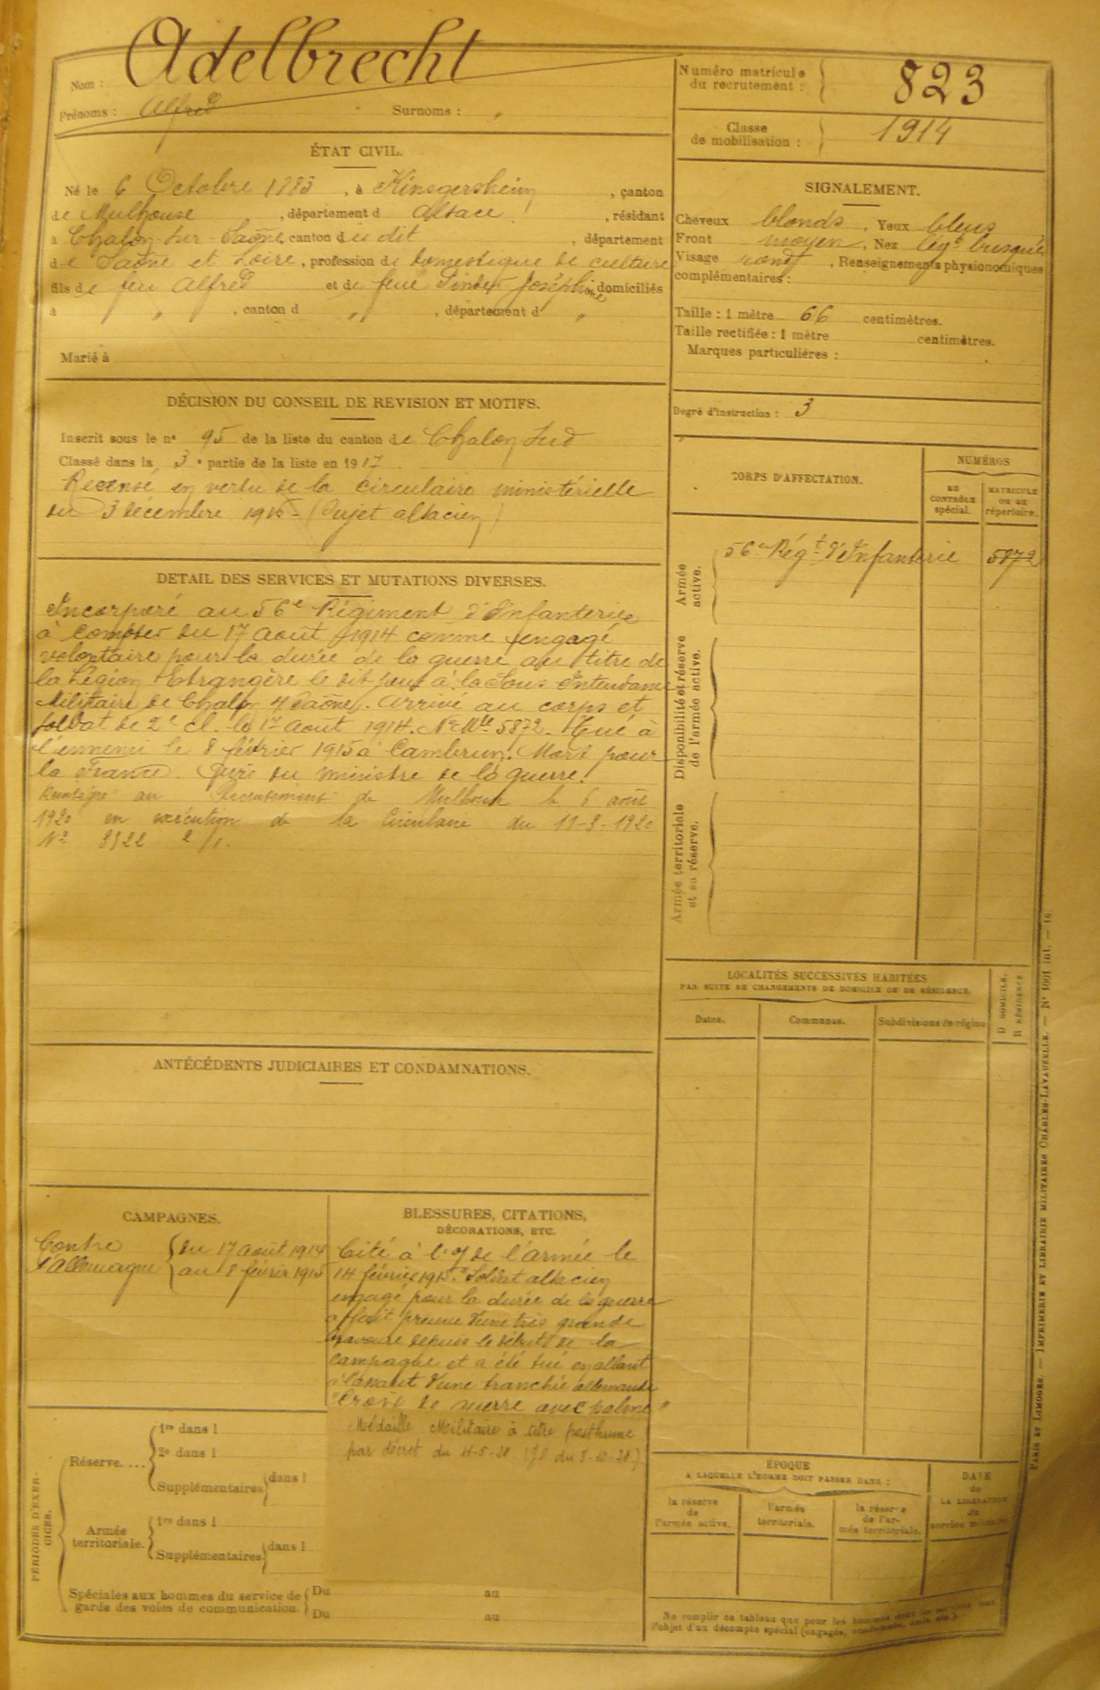 Nom : Adelbrecht
Prénoms : Alfred Surnoms : "
Numéro matricule du recrutement : 823
Classe de mobilisation : 1914
ÉTAT CIVIL.
Né le 6 Octobre 1893, à Kingersheim, canton
de Mulhouse, département d Alsace, résidant
à Chalon-sur-Saône canton du dit, département
de Saône et Loire, profession de domestique de culture
fils de feu Alfred et de feue Joséphine domiciliés
à " ", canton d " ", département d "
Marié à
SIGNALEMENT.
Cheveux blonds. Yeux bleus
Front moyen. Nez légt busqué
Visage rond. Renseignements physionomiques
complémentaires :
Taille : 1 mètre 66 centimètres.
Taille rectifiée : 1 mètre centimètres.
Marques particulières :
Degré d'instruction : 3
DÉCISION DU CONSEIL DE REVISION ET MOTIFS.
Inscrit sous le n° 95 de la liste du canton de Chalon Sud
Classé dans la 3e partie de la liste en 1917
Recensé en vertu de la circulaire ministérielle
du 3 décembre 1915 - (Sujet alsacien)
DETAIL DES SERVICES ET MUTATIONS DIVERSES.
Incorporé au 56e Régiment d'Infanterie
à compter du 17 août 1914 comme engagé
volontaire pour la durée de la guerre au titre de
la Légion Etrangère le dit jour à la Sous Intendance
Militaire de Chalon s/Saône. Arrivé au corps et
soldat de 2e cl. le 17 août 1914. No Mle 5872. Tué à
l'ennemi le 8 février 1915 à Cambrin. Mort pour
la France. du ministre de la guerre.
au Recrutement de Mulhouse le 6 août
1920 en exécution de la Circulaire du 11-3-1920
No 8522 2/1.
CORPS D'AFFECTATION.
NUMÉROS
AU CONTROLE spécial.
MATRICULE OU AU répertoire.
Armée active.
56e Régt d'Infanterie 5872
Disponibilité et réserve de l'armée active.
Armée territoriale et sa réserve.
LOCALITÉS SUCCESSIVES HABITÉES
PAR SUITE DE CHANGEMENTS DE DOMICILE OU DE RÉSIDENCE.
Dates. Communes. Subdivisions de région
D DOMICILE.
R RÉSIDENCE
ANTÉCÉDENTS JUDICIAIRES ET CONDAMNATIONS.
CAMPAGNES.
Contre l'Allemagne
du 17 août 1914
au 8 février 1915
BLESSURES, CITATIONS,
DÉCORATIONS, ETC.
Cité à l'o/ de l'armée le
14 février 1915. "Soldat alsacien
engagé pour la durée de la guerre
a fait preuve d'une très grande
bravoure depuis le début de la
campagne et a été tué en allant
à l'assaut d'une tranchée allemande
Croix de guerre avec palme"
Médaille Militaire à titre posthume
par décret du
PÉRIODES D'EXERCICES.
Réserve....
1re dans l
2e dans l
Supplémentaires dans l
Armée territoriale.
1re dans l
Supplémentaires dans l
Spéciales aux hommes du service de
garde des voies de communication.
Du au
Du au
ÉPOQUE
A LAQUELLE L'HOMME DOIT PASSER DANS :
la réserve de l'armée active.
l'armée territoriale.
la réserve de l'armée territoriale.
DATE de LA LIBÉRATION du service militaire
Ne remplir ce tableau que pour les hommes
l'objet d'un décompte spécial (engagés,
PARIS ET LIMOGES. — IMPRIMERIE ET LIBRAIRIE MILITAIRES CHARLES-LAVAUZELLE. —